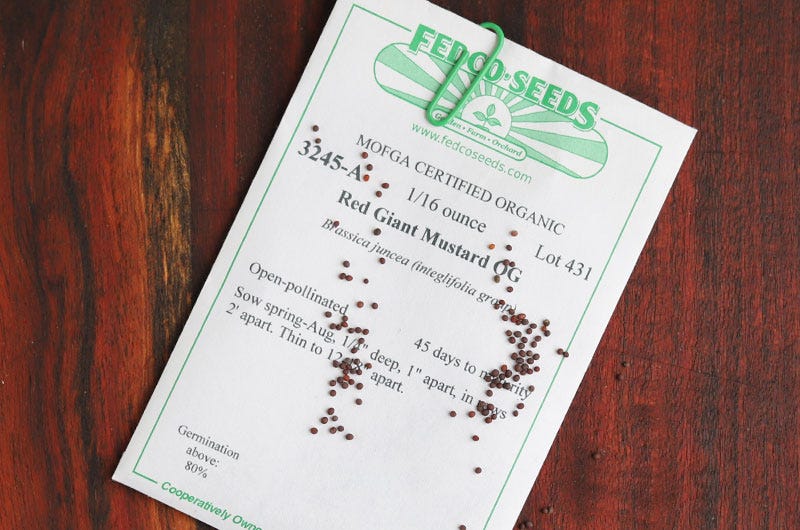 FEDCO·SEEDS
Garden · Farm · Orchard
www.fedcoseeds.com
MOFGA CERTIFIED ORGANIC
3245-A 1/16 ounce Lot 431
Red Giant Mustard OG
Brassica juncea (integlifolia group)
Open-pollinated 45 days to maturity
Sow spring-Aug, 1/4" deep, 1" apart, in rows
2' apart. Thin to apart.
Germination
above:
80%
Cooperatively Owne